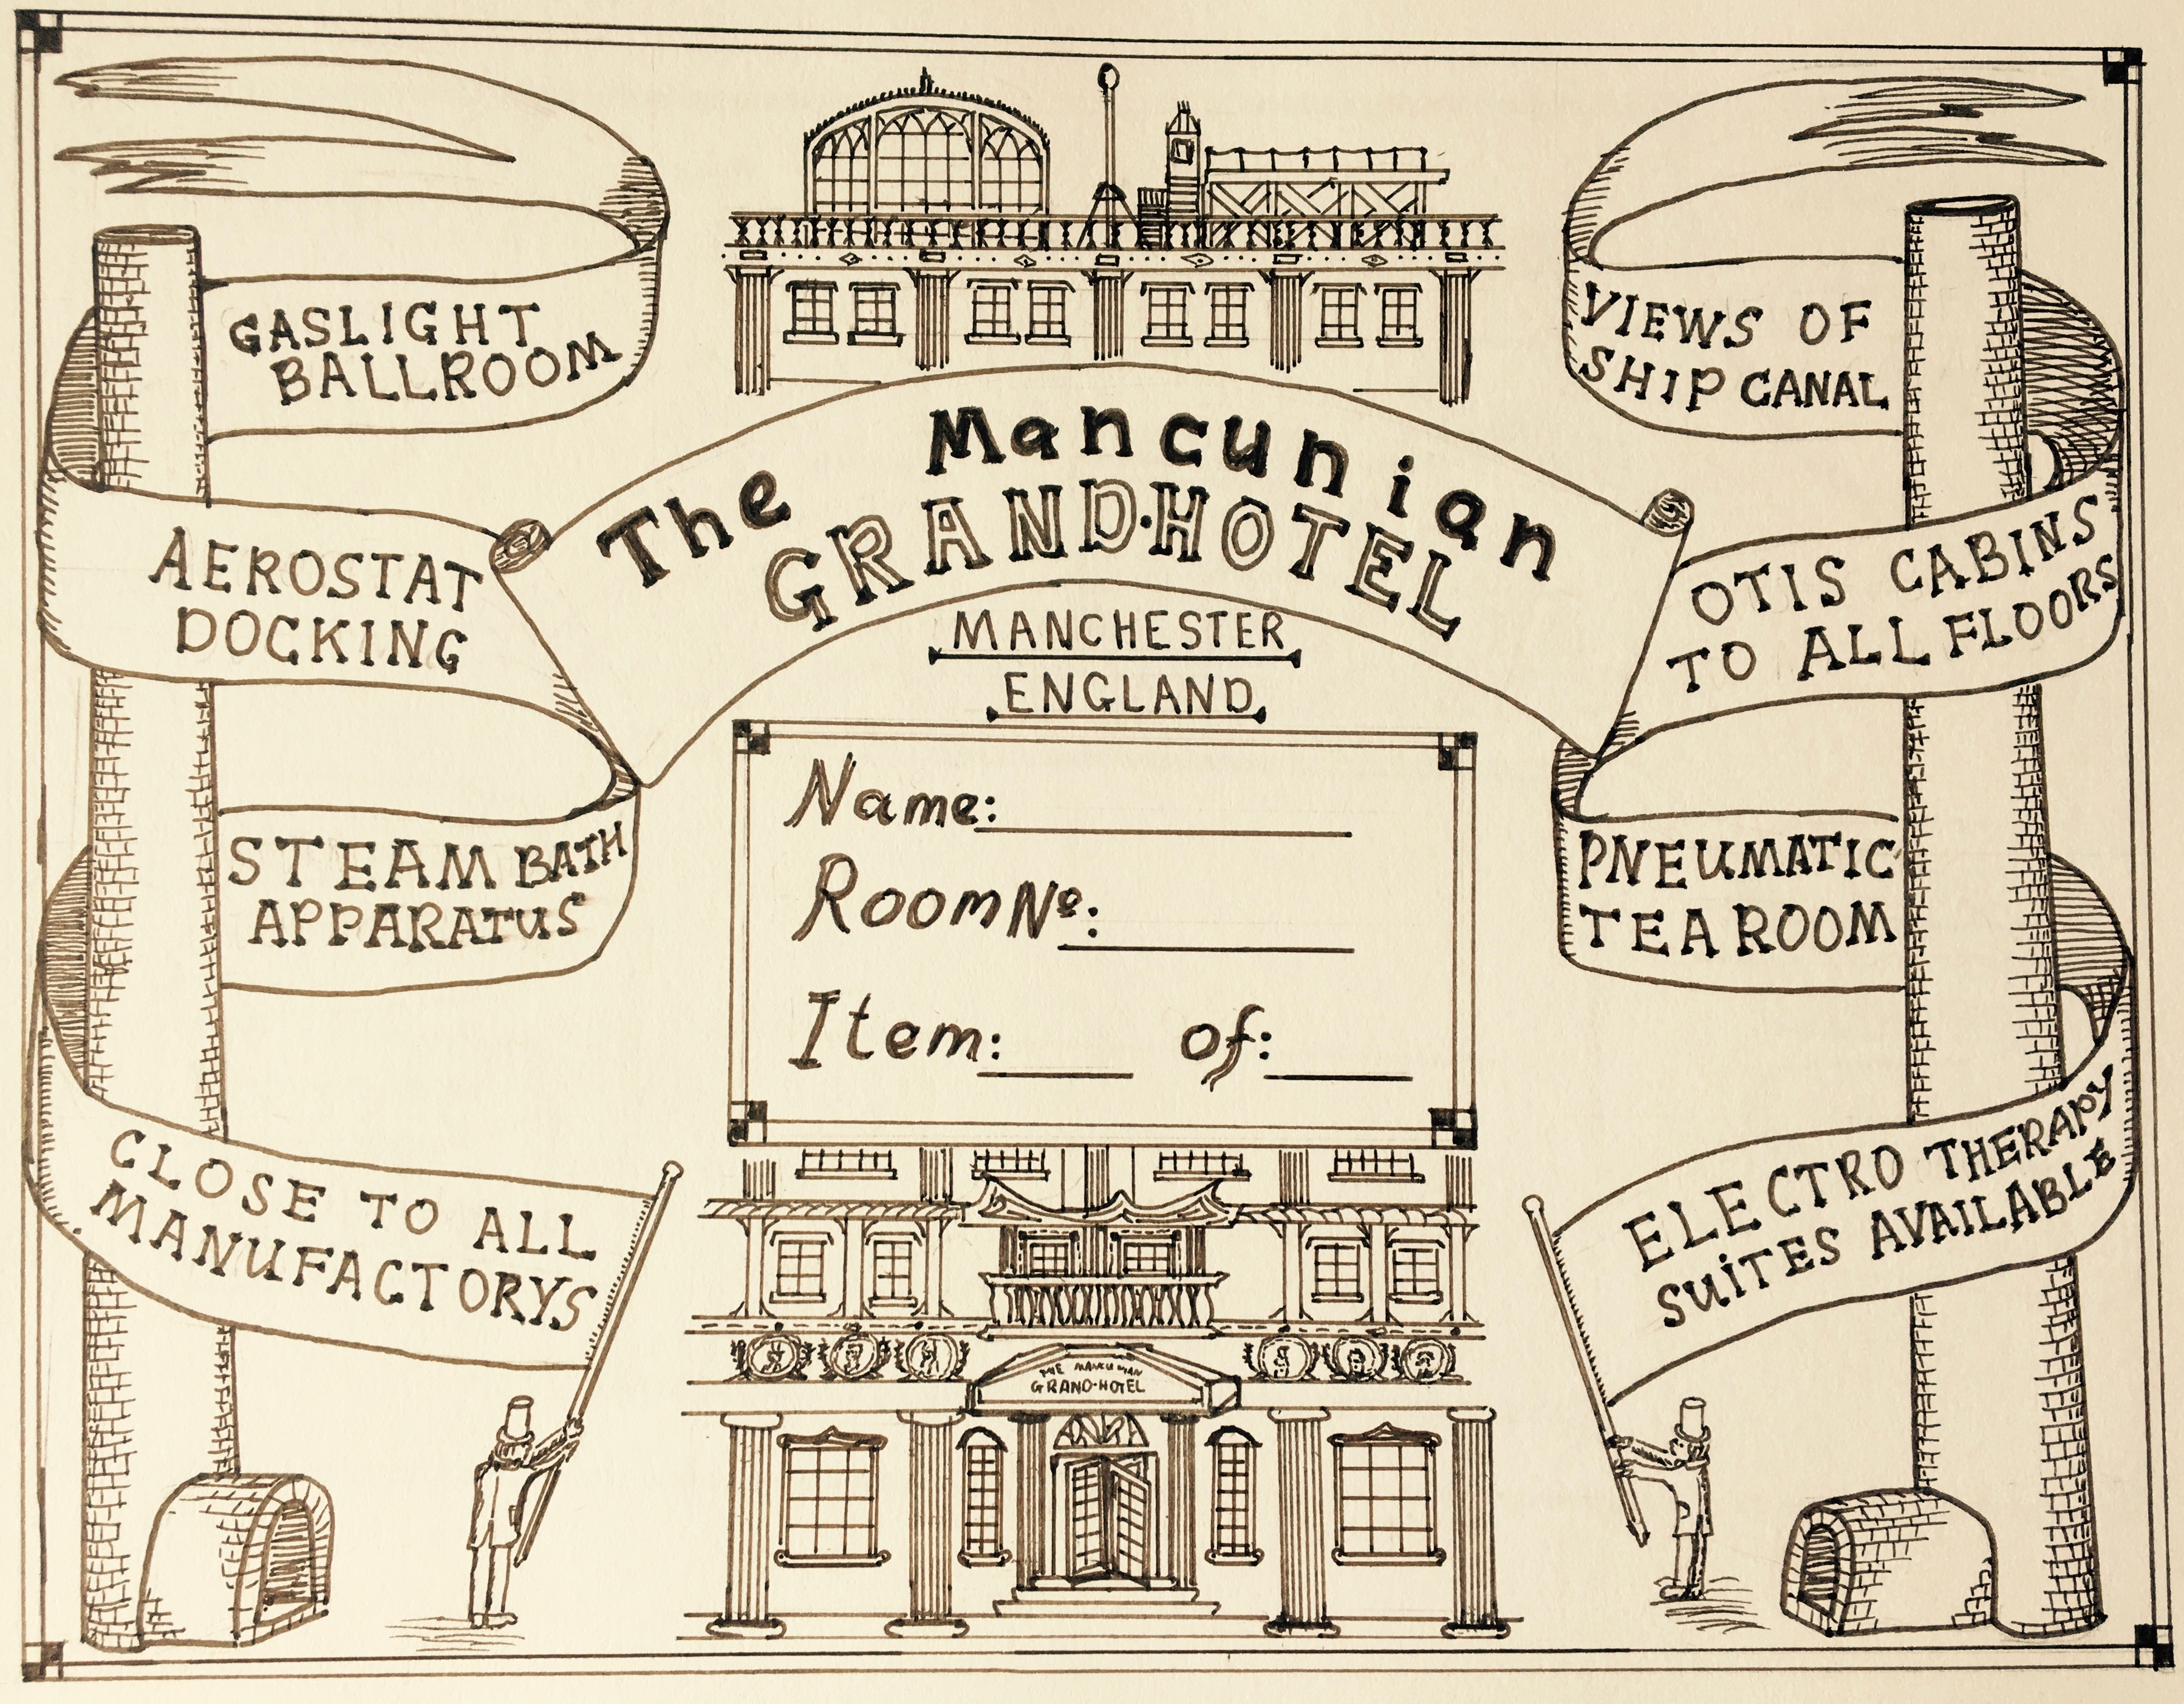 GASLIGHT
BALLROOM
VIEWS OF
SHIP CANAL
The Mancunian
GRAND·HOTEL
MANCHESTER
ENGLAND
AEROSTAT
DOCKING
OTIS CABINS
TO ALL FLOORS
Name:
Room No:
Item: of:
STEAM BATH
APPARATUS
PNEUMATIC
TEA ROOM
CLOSE TO ALL
MANUFACTORYS
ELECTRO THERAPY
SUITES AVAILABLE
THE MANCUNIAN
GRAND·HOTEL